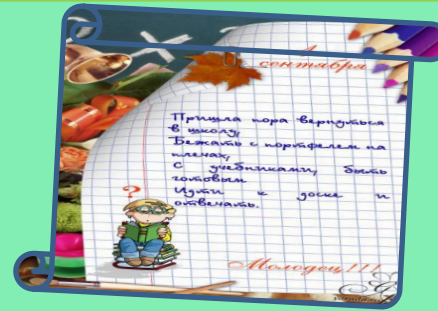 1
сентября
Пришла пора вернуться
в школу,
Бежать с портфелем на
плечах,
С учебниками, быть
готовым
Идти к доске и
отвечать.
?
Молодец!!!